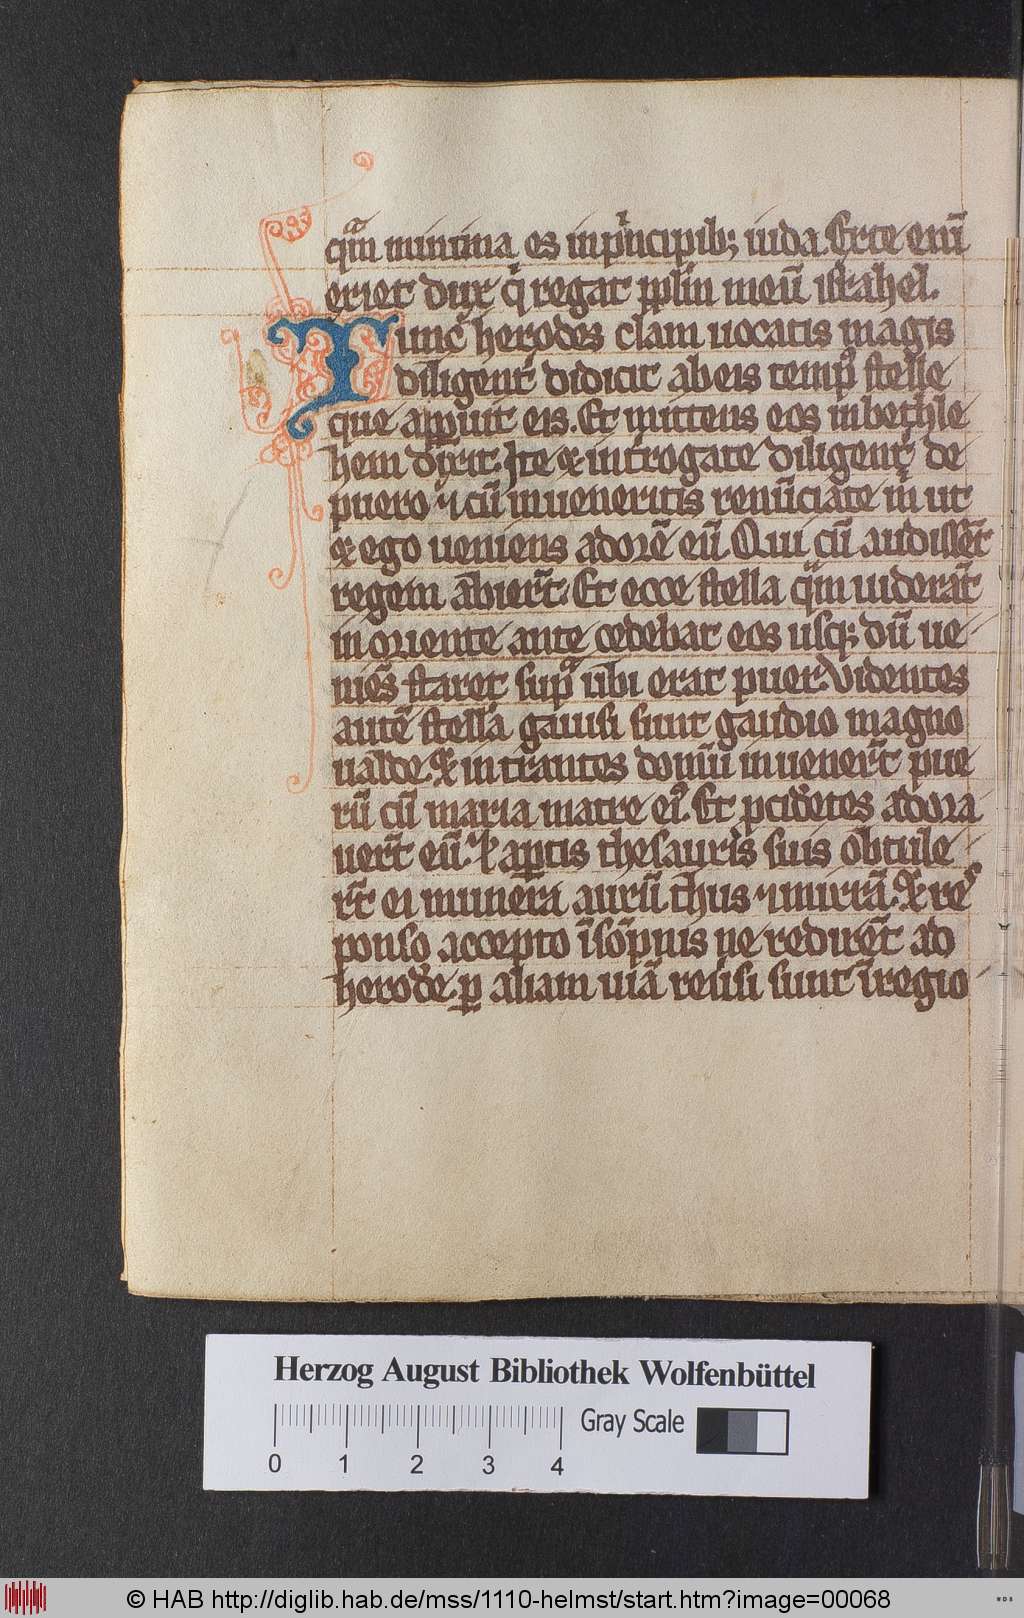 qᵃm minima es inpͥncipib; iuda. Er te eni̅
exiet dux qͥ regat pplm meu̅ israhel.
Tunc herodes clam uocatis magis
diligent̕ didicit ab eis temp᷒ stelle
que apparuit eis. Et mittens eos in bethle
hem dixit. Ite & int̕rogate diligent̕ de
puero ⁊ cu̅ inueneritis renu̅ciate m̕ ut
& ego ueniens adore̅ eu̅. Qui cu̅ audisse̅t
regem abieru̅t. Et ecce stella qᵃm uidera̅t
in oriente antecedebat eos usq; du̅ ue-
nie̅s staret sup̕ ubi erat puer. Videntes
aute̅ stella̅ gauisi sunt gaudio magno
ualde. & intrantes domu̅ inuener̅t pue
ru̅ cu̅ maria matre ei᷒. Et p̱cide̅tes adora
uer̅t eu̅. Et ap̱tis thesauris suis obtule-
r̅t ei munera auru̅ thus ⁊ mirra̅. & res
ponso accepto i̅ so̅pnis ne redire̅t ad
herode̅. p̱ aliam uia̅ reu̕si sunt i̅ regio
Herzog August Bibliothek Wolfenbüttel
Gray Scale
0 1 2 3 4
© HAB http://diglib.hab.de/mss/1110-helmst/start.htm?image=00068